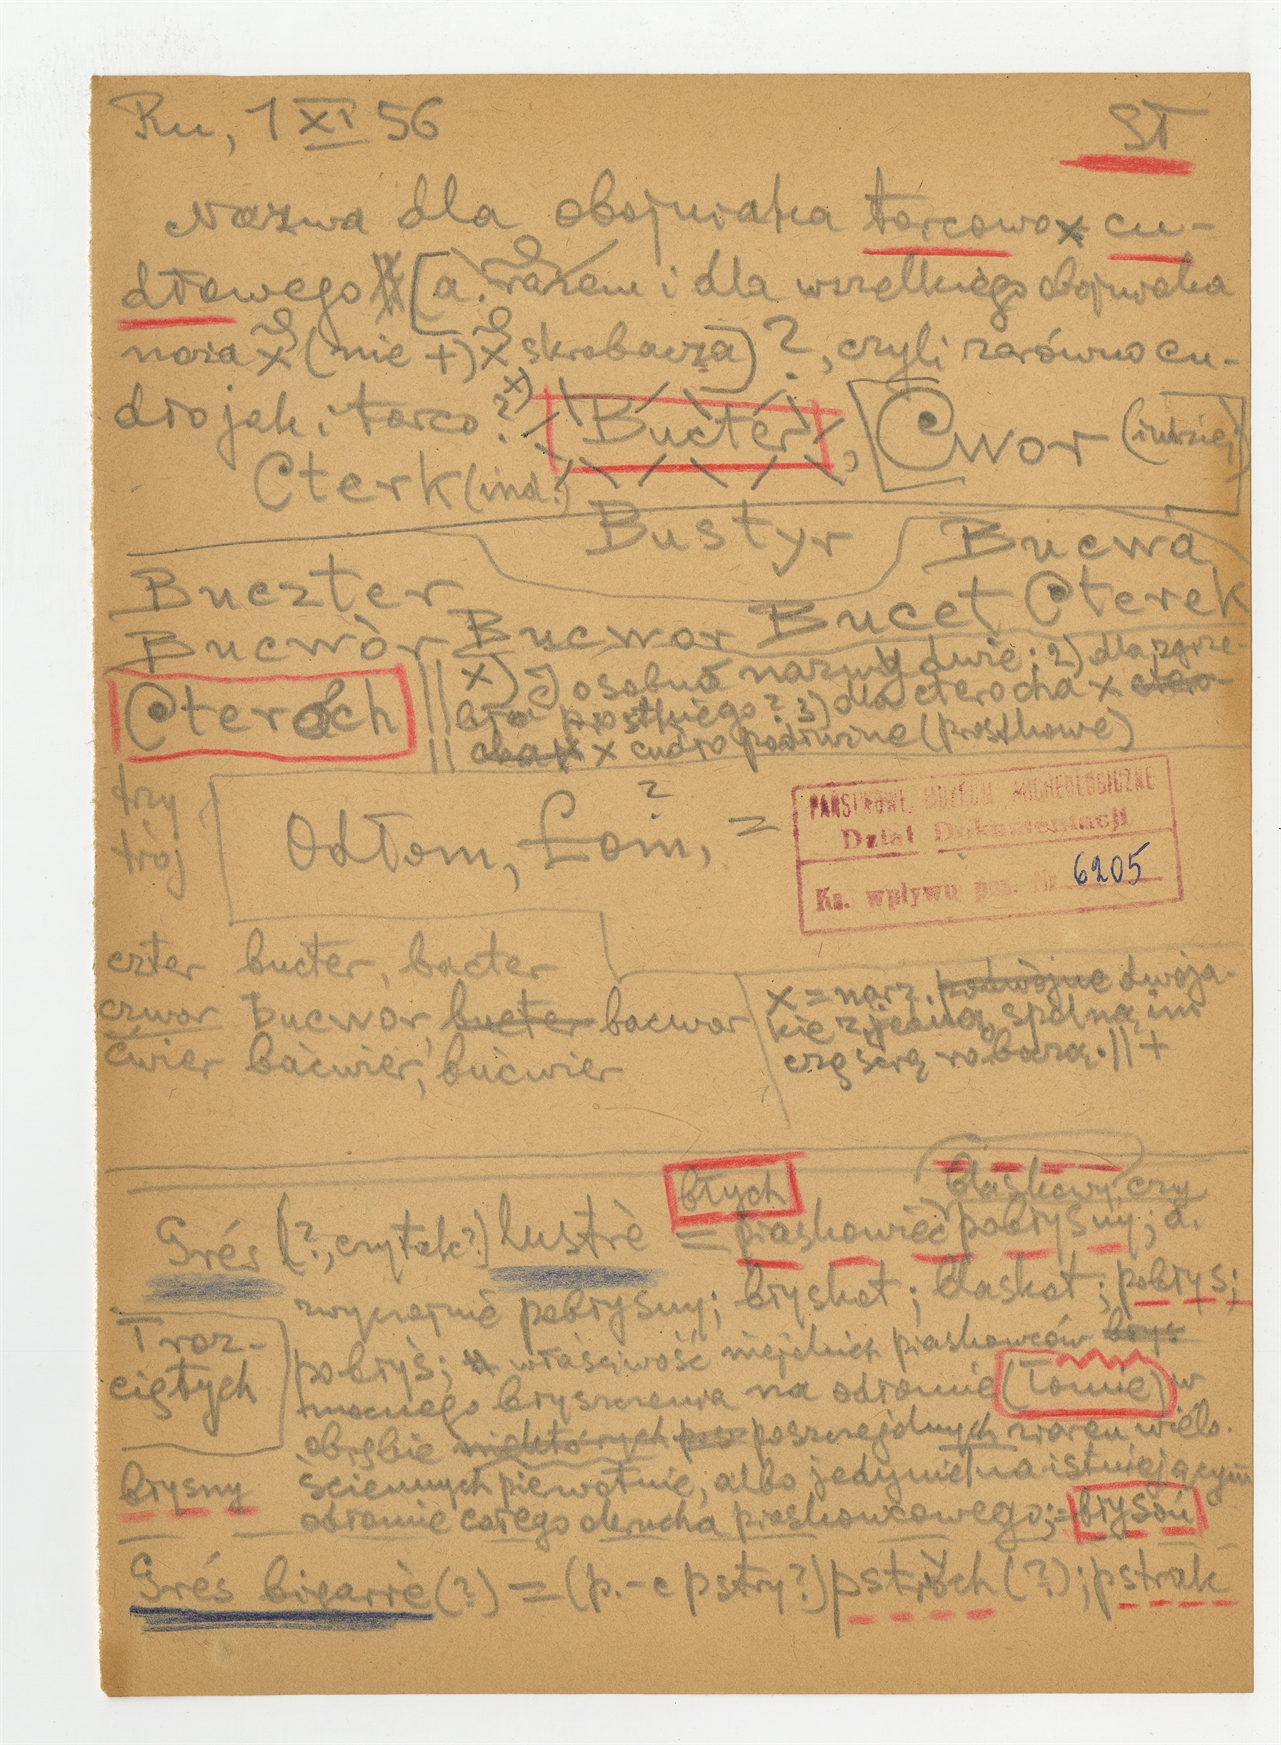 Ru, 1 XI 56
ST
Nazwa dla obojniaka tarcowo x cu-
dłowego [a. razem i dla wszelkiego obojniaka
noża x (nie +) x skrobacza) ?, czyli zarówno cu-
dło jak i tarco? x) Bucter, Cwor (indziej)
Cterk (ind.?)
Bustyr Bucwa
Buczter
Bucwòr Bucwor Bucet Cterek
Cteroch
x) osobno nazwy dwie; 2) dla zgrze-
bła prostkiego? 3) dla cterocha x ctero-
x cudło (prostkowe)
trzy
trój
Odłom, Łom, ? =
PAŃSTWOWE MUZEUM ARCHEOLOGICZNE
Dział Dokumentacji
Ks. wpływu poz. Nr 6205
czter bucter, bacter
czwor bucwor, bucter bacwor
ćwier baćwier, bućwier
x = narz. podwójne dwoja-
kie z jedną, spólną im
częścią roboczą. || +
błych
błaskowy, czy
Grés (?, czy tak?) lustrè = piaskowiec pobłysny; a.
zwyczajnie pobłysny; błyskot; błaskot; pobłys;
pobłyś; właściwość niejakich piaskowców błys
mocnego błyszczenia na odłomie (łomie) w
obrębie niektórych pos poszczególnych ziaren wielo-
ściennych pierwotnie, albo jedynie na istniejącym
odłomie całego okrucha piaskowcowego; = błysoń
Troz-
ciętych
błysny
Grés bigarrè (?) = (p.-c pstry?) pstrych (?); pstrak